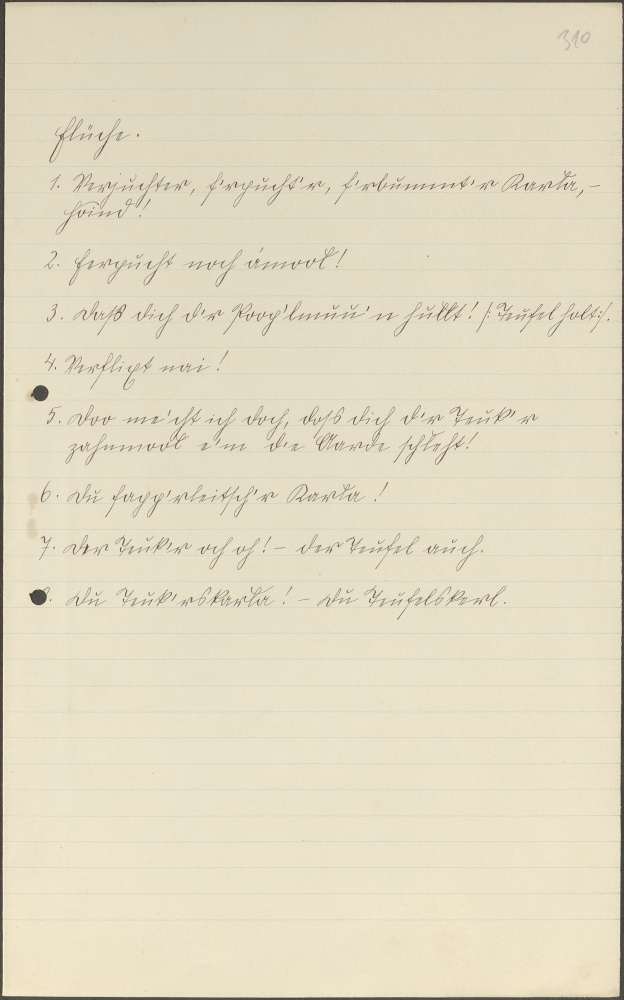 310
Flüche.
1. Verfuchter, firpucht'r, firbummt'r Karla,-
Hoind!
2. Ferpucht noch ámool!
3. Daß dich d'r Poop'lmuu'n hullt! /:Teufel holt:/.
4. Verflixt nai!
5. Doo me'cht ich doch, doß dich d'r Teuk'r
zahnmool e'm d'e Aarde schleht!
6. Du happ'rleitsch'r Karla!
7. Der Teuk'r och oh! - der Teufel auch.
8. Du Teuk'rskarla! - Du Teufelskerl.